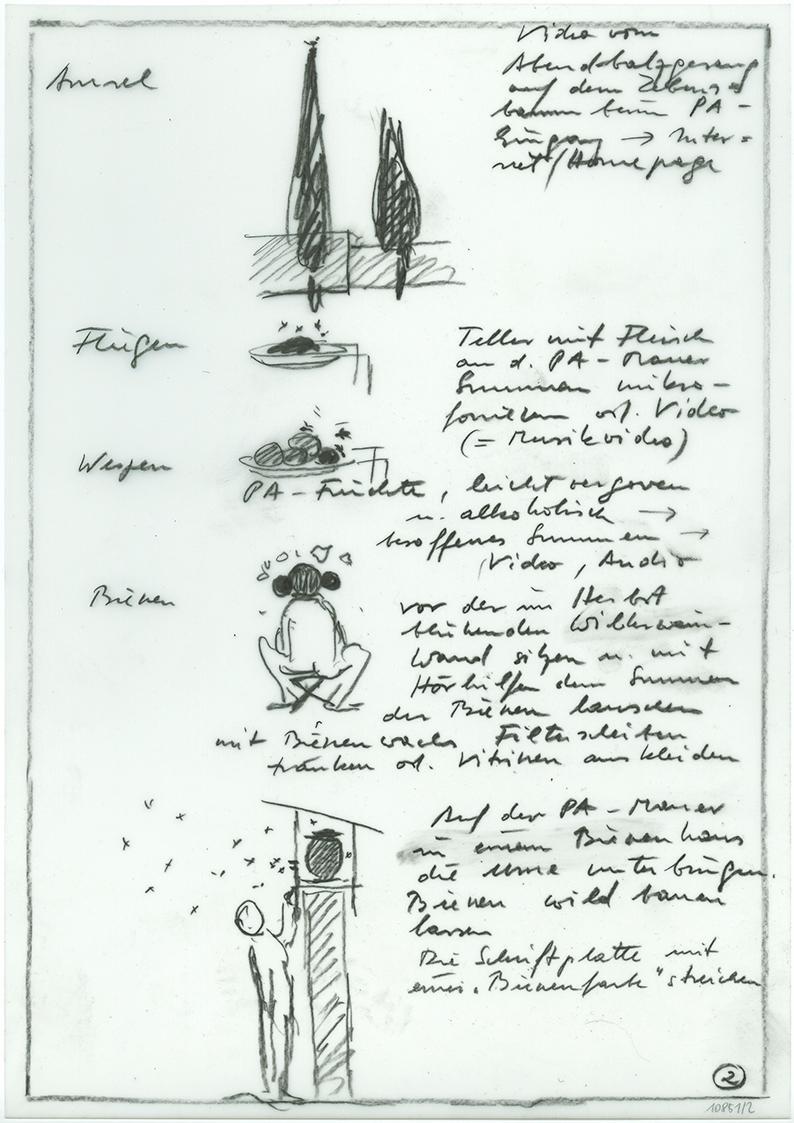 Amsel
Video vom
Abendbalzgesang
auf dem Lebens=
baum beim PA-
Eingang → Inter=
net/Homepage
Fliegen
Teller mit Fleisch
an d. PA-Mauer
Summen mikro-
fonieren od. Video
(= Musikvideo)
Wespen
PA-Früchte, leicht vergoren
u. alkoholisch →
besoffenes Summen →
Video, Audio
Bienen
vor der im Herbst
blühenden Wilderwein-
wand sitzen u. mit
Hörhilfen dem Summen
der Bienen lauschen
mit Bienenwachs Filterscheiben
tränken od. Vitrinen auskleiden
Auf der PA-Mauer
in einem Bienenhaus
die Urne unterbringen.
Bienen wild bauen
lassen
Die Schriftplatte mit
einer „Bienenfarbe" streichen
2
10851/2